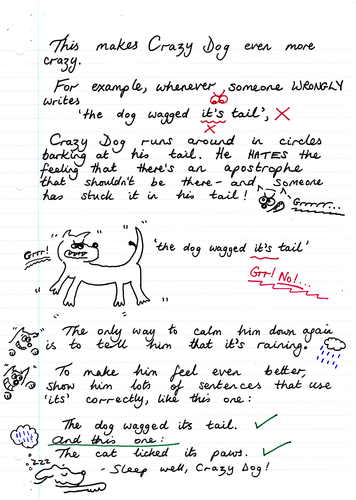 This makes Crazy Dog even more
crazy.
For example, whenever someone WRONGLY
writes
'the dog wagged it's tail', X
X
Crazy Dog runs around in circles
barking at his tail. He HATES the
feeling that there's an apostrophe
that shouldn't be there - and someone
has stuck it in his tail!
Grrrrr...
Grrr!
'the dog wagged it's tail'
Grr! No!...
The only way to calm him down again
is to tell him that it's raining.
To make him feel even better,
show him lots of sentences that use
'its' correctly, like this one:
The dog wagged its tail. ✓
And this one:
The cat licked its paws. ✓
zzz
- Sleep well, Crazy Dog!